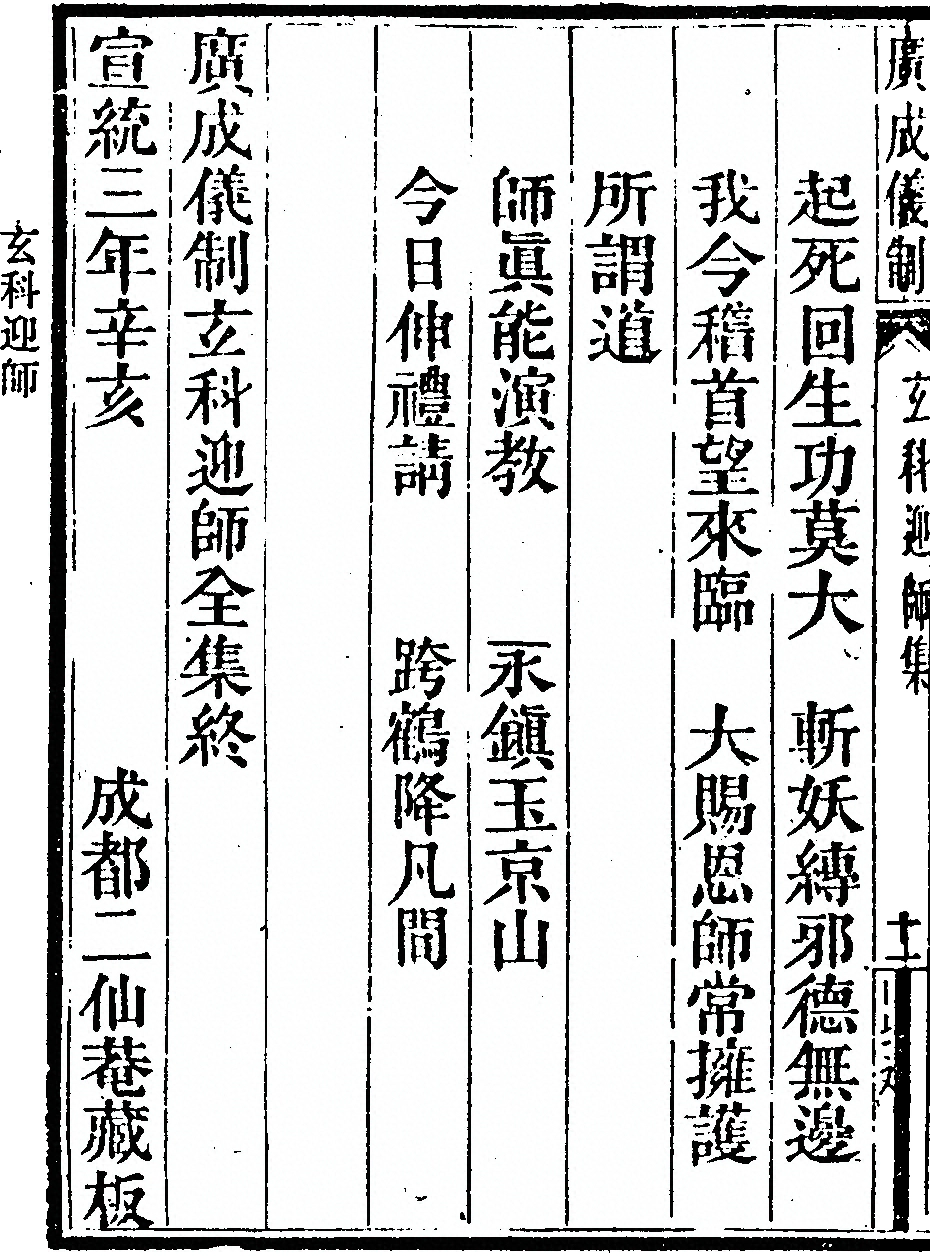 廣成儀制 玄科迎師集 十二
起死回生功莫大 斬妖縛邪德無邊
我今稽首望來臨 大賜恩師常擁護
所謂道
師眞能演教 永鎭玉京山
今日伸禮請 跨鶴降凡間
廣成儀制玄科迎師全集終
宣統三年辛亥 成都二仙菴藏板
玄科迎師